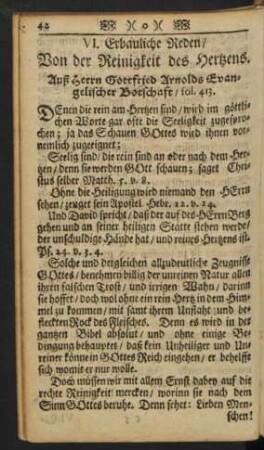 42 ❧ ( o ) ❧
VI. Erbauliche Reden/
Von der Reinigkeit des Hertzens.
Auß Herrn Gottfried Arnolds Evan-
gelischer Botschaft / fol. 413.
DEnen die rein am Hertzen sind / wird im göttli-
chen Worte gar oft die Seeligkeit zugespro-
chen; ja das Schauen GOttes wird ihnen vor-
nemlich zugereignet;
Seelig sind / die rein sind an oder nach dem Her-
tzen / denn sie werden GOtt schauen; saget Chri-
stus selber Matth. 5. v. 8.
Ohne die Heiligung wird niemand den HErrn
sehen / zeuget sein Apostel. Hebr. 12. v. 14.
Und David spricht / daß der auf des HErrn Berg
gehen und an seiner heiligen Statte stehen werde/
der unschuldige Hände hat / und reines Hertzens ist.
Ps. 24. v. 3. 4.
Solche und dergleichen allzudeutliche Zeugnisse
GOttes / benehmen billig der unreinen Natur allen
ihren falschen Trost / und irrigen Wahn / darinn
sie hoffet / doch wol ohne ein rein Hertz in dem Him-
mel zu kommen / mit samt ihrem Unflaht und be-
fleckten Rock des Fleisches. Denn es wird in der
gantzen Bibel absolut / und ohne einige Be-
dingung behauptet / daß kein Unheiliger und Un-
reiner könne in GOttes Reich eingehen / er behelffe
sich womit er nur wolle.
Doch müssen wir mit allem Ernst dabey auf die
rechte Reinigkeit mercken / worinn sie nach dem
Sinn GOttes beruhe. Denn sehet: Lieben Men-
schen!